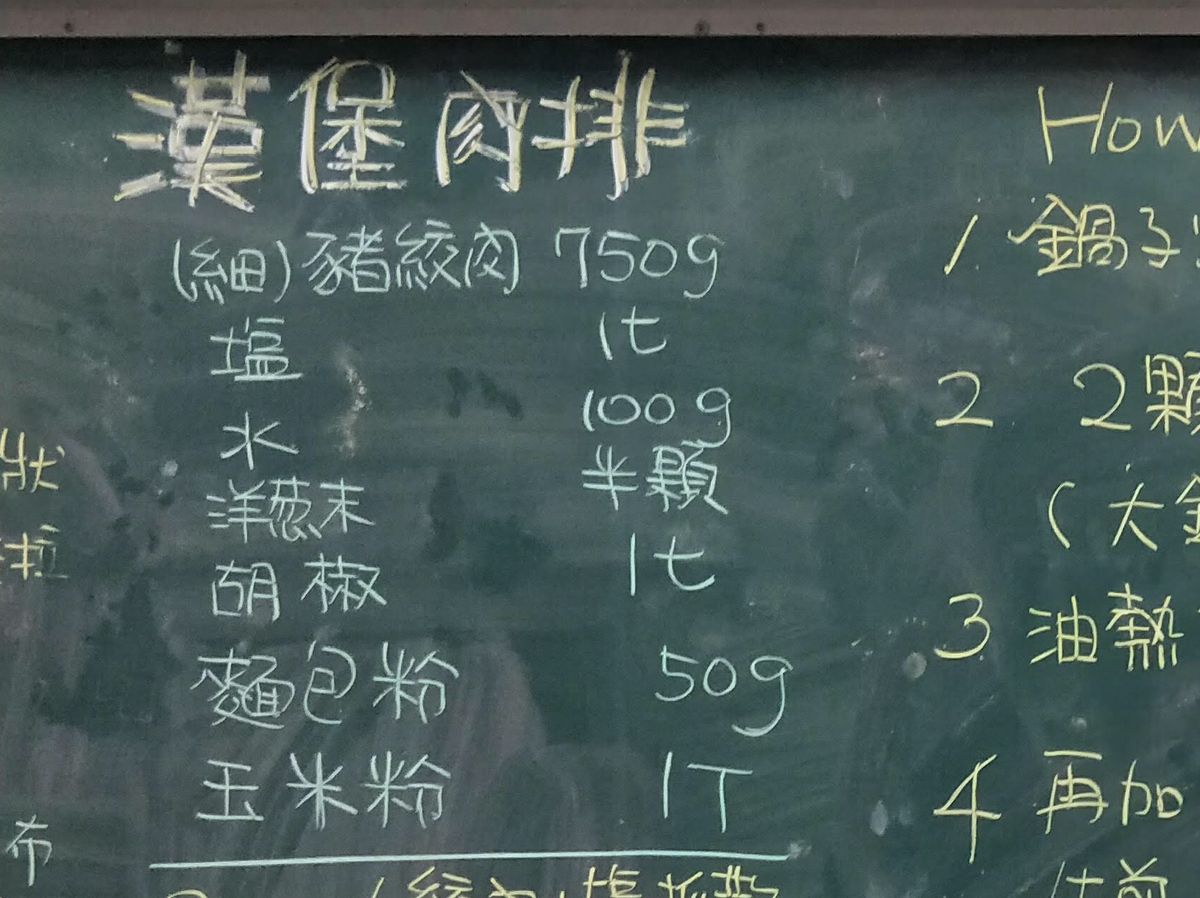 漢堡肉排
(細)豬絞肉 750g
塩 1t
水 100g
洋葱末 半顆
胡椒 1t
麵包粉 50g
玉米粉 1T
How
1 鍋子
2 2顆
(大
3 油熱
4 再加
狀
拉
布